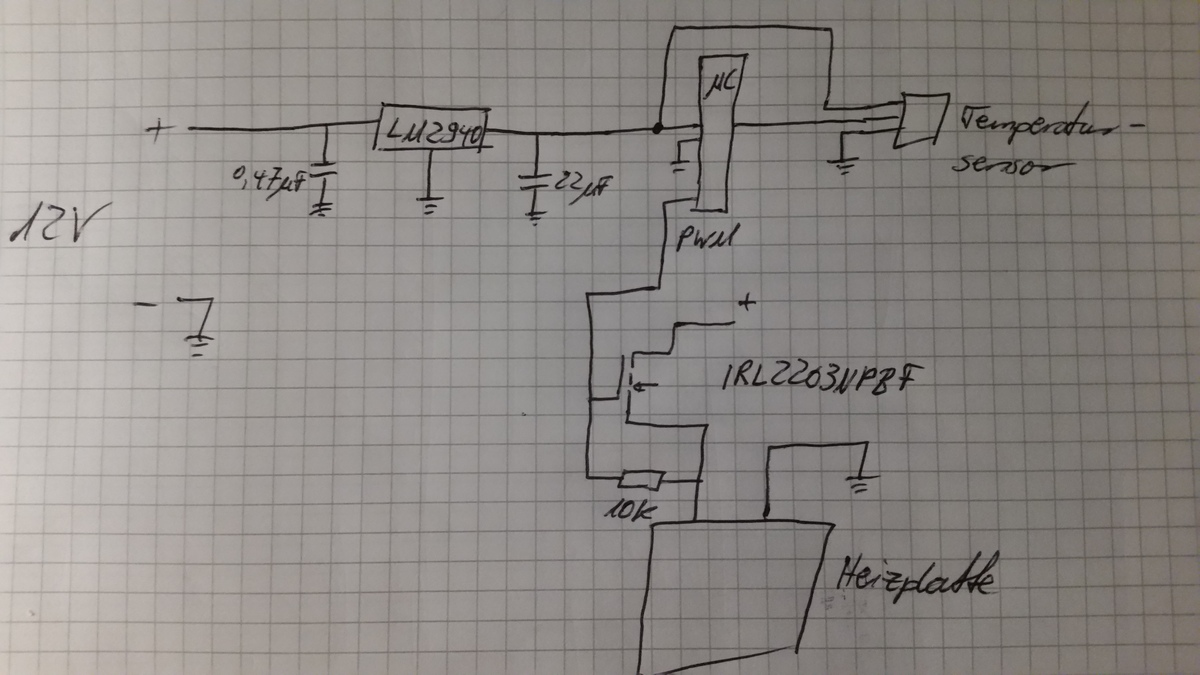 µC
+
LM2940
0,47µF
22µF
Temperatur-
sensor
12V
PWM
-
+
IRL2203NPBF
10k
Heizplatte